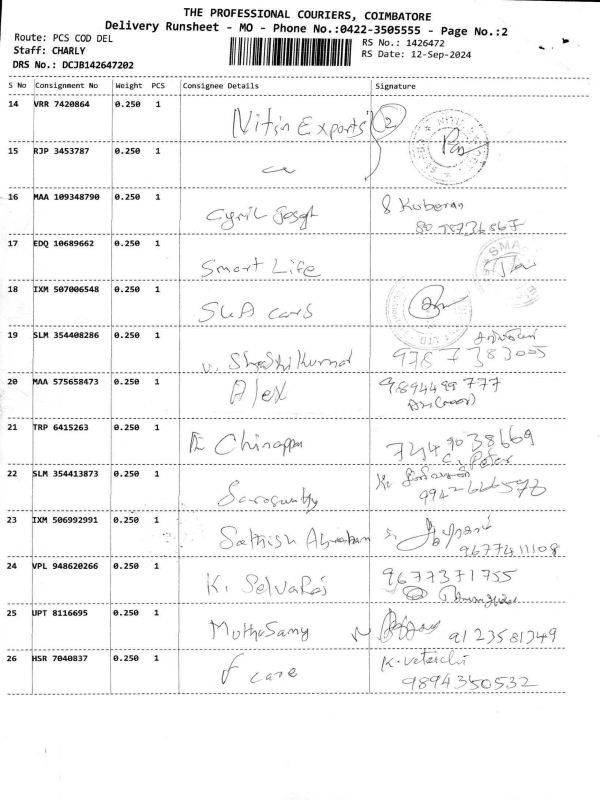 THE PROFESSIONAL COURIERS, COIMBATORE
Delivery Runsheet - MO - Phone No.:0422-3505555 - Page No.:2
Route: PCS COD DEL
RS No.: 1426472
Staff: CHARLY
RS Date: 12-Sep-2024
DRS No.: DCJB142647202
S No Consignment No Weight PCS Consignee Details Signature
14 VRR 7420864 0.250 1 Nitin Exports 2
15 RJP 3453787 0.250 1
16 MAA 109348790 0.250 1 Cyril Joseph
17 EDQ 10689662 0.250 1 Smart Life
18 IXM 507006548 0.250 1 SUA cars
19 SLM 354408286 0.250 1 V. Shashikumar 9787383005
20 MAA 575658473 0.250 1 Alex 9894499777
21 TRP 6415263 0.250 1 Chinappa C. Peter
22 SLM 354413873 0.250 1
23 IXM 506992991 0.250 1 Sathish Abraham 9677411108
24 VPL 948620266 0.250 1 K. Selvaraj 9677371755
25 UPT 8116695 0.250 1 MuthuSamy 9123581349
26 HSR 7040837 0.250 1 care 9894350532